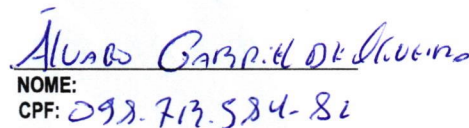 Álvaro Gabriel de Oliveira
NOME:
CPF: 098.713.584-82